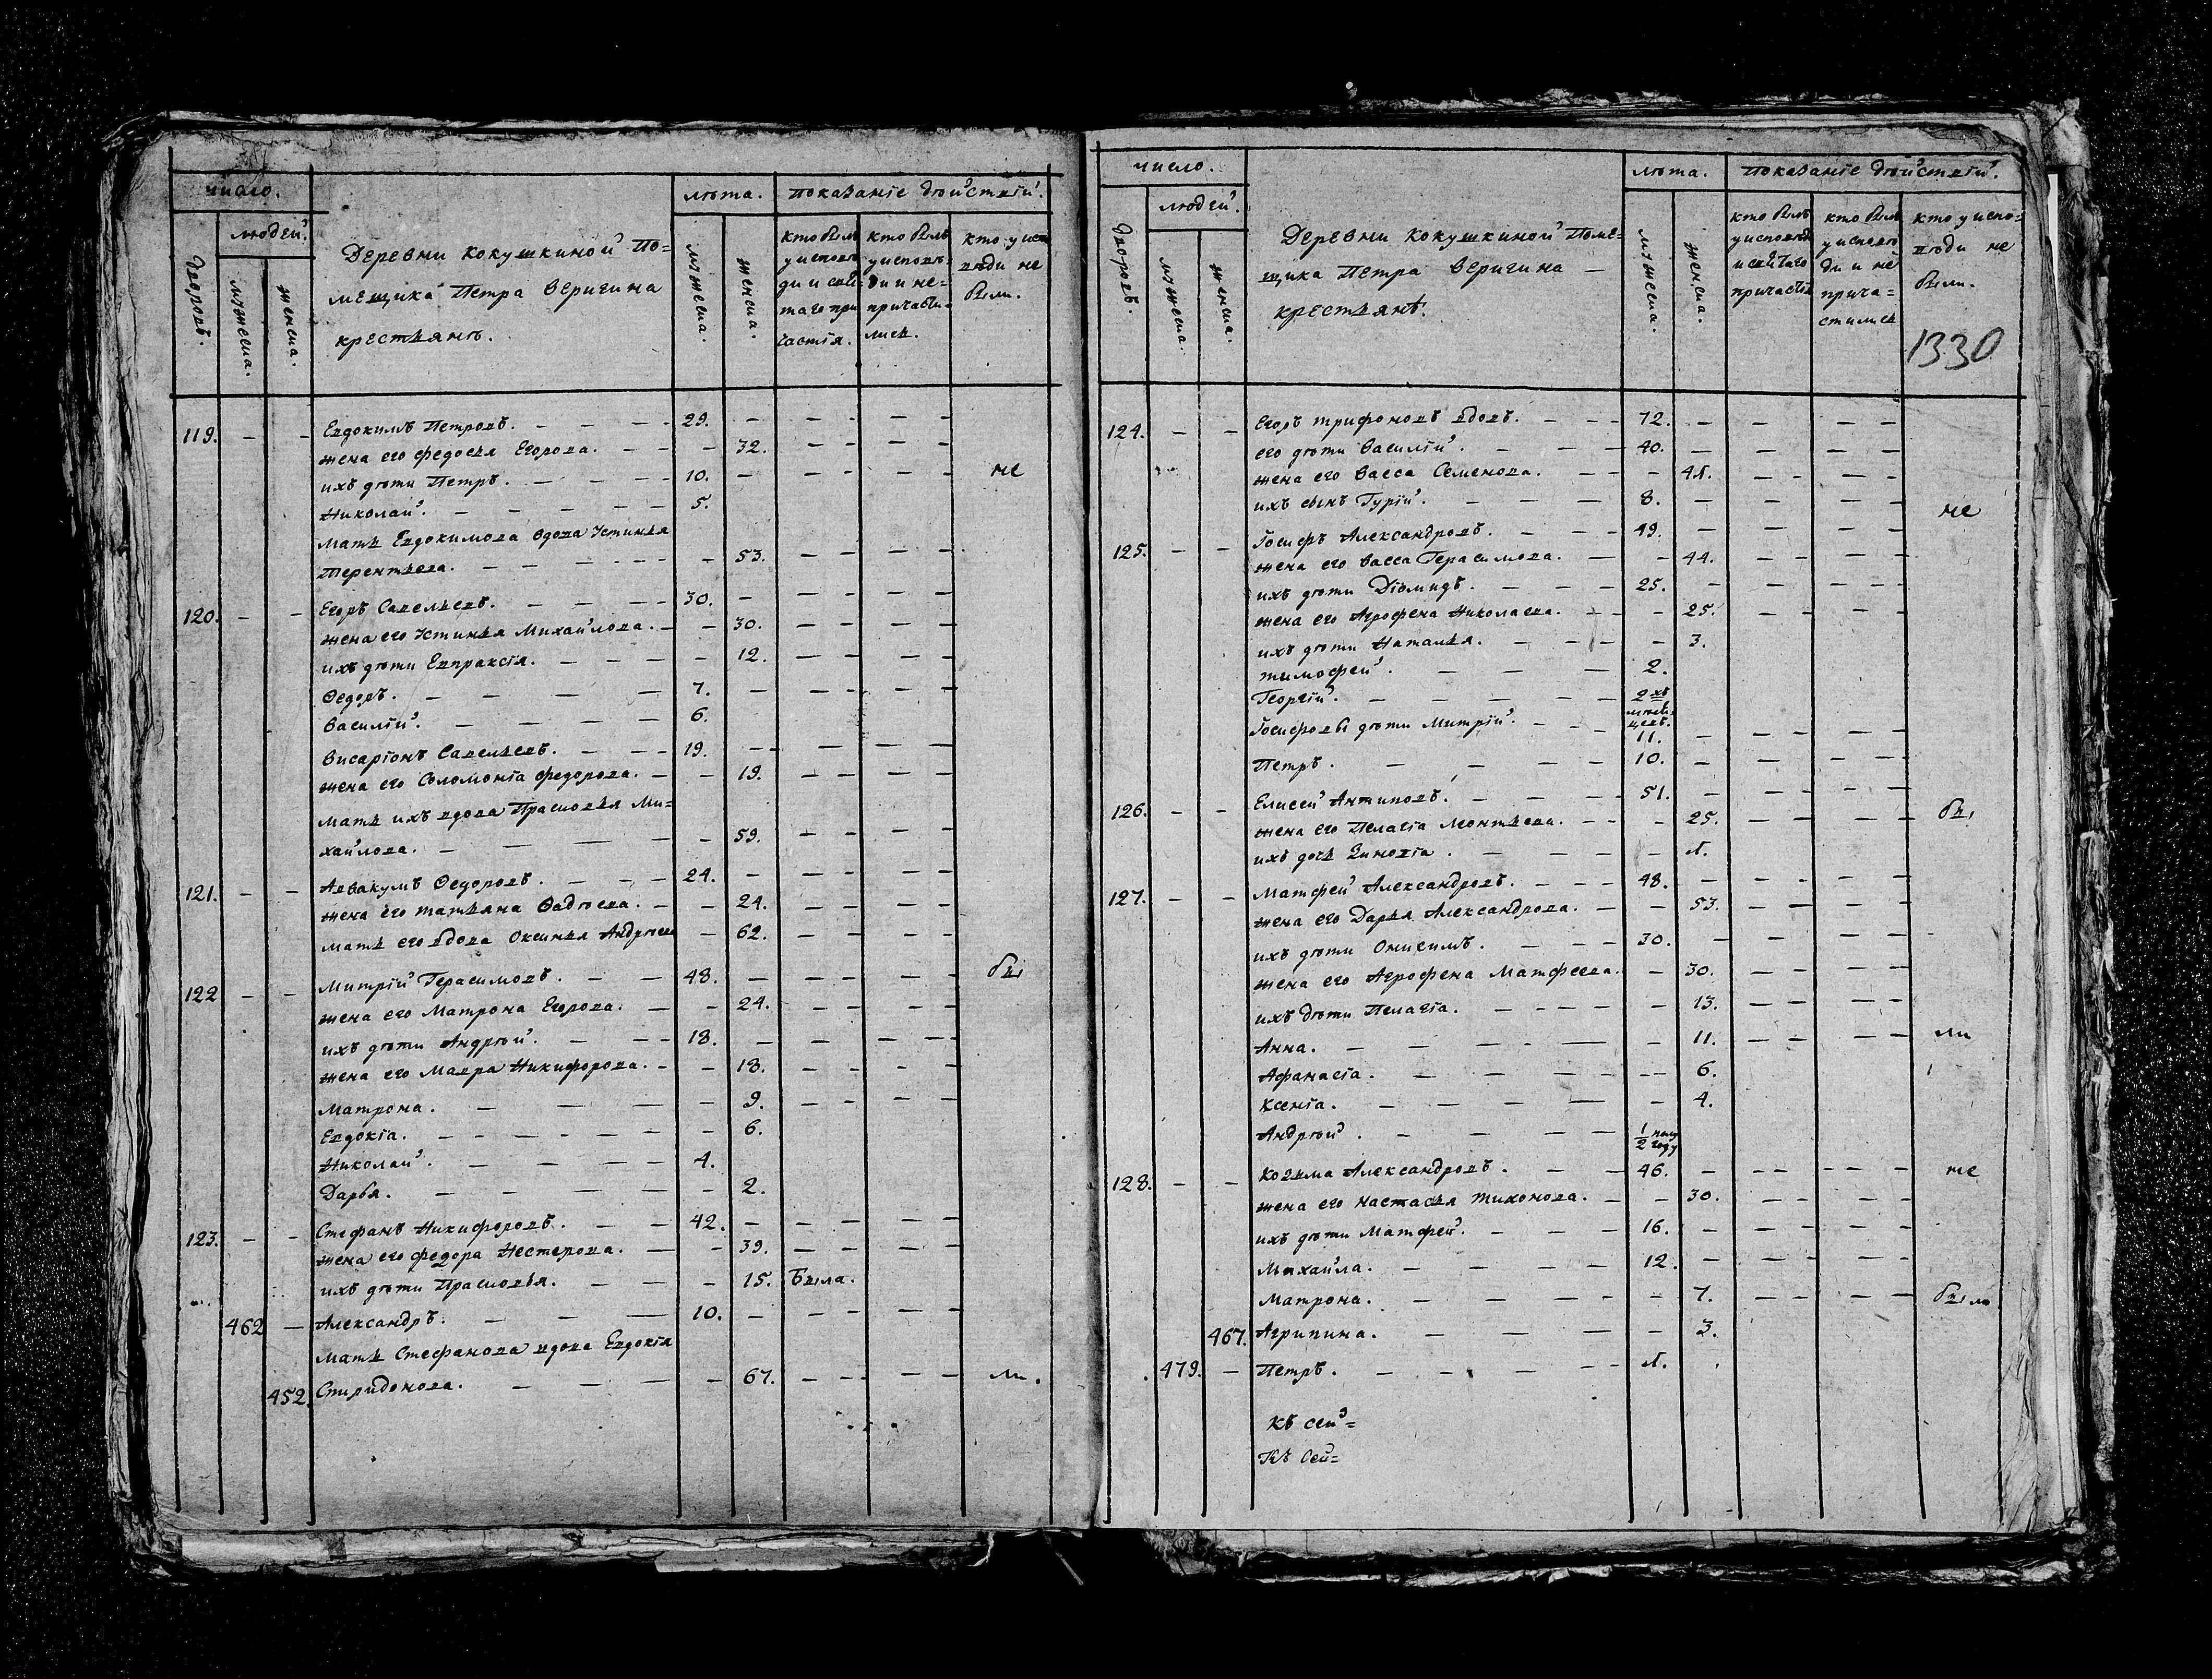 число.
людей.
дворовъ.
мужеска.
женска.
Деревни Кокушкиной По=
мещика Петра Веригина
крестьянъ.
лѣта.
мужеска.
женска.
показаніе дѣйствій.
кто былъ
у исповѣ
ди и свя=
таго при
частія.
кто былъ
у исповѣ=
ди и не=
причасти=
лись.
кто у испо
вѣди не
были.
119. — — Евдокимъ Петровъ. — 29. — — —
жена его Федосья Егорова. — — 32. — —
ихъ дѣти Петръ. — 10. — — — не
Николай. — 5.
Мать Евдокимова вдова Устинья
Терентьева. — — 53. — —
120. — — Егоръ Савельевъ. — 30. — — —
жена его Устинья Михайлова. — — 30. — —
ихъ дѣти Евпраксія. — — 12. — —
Ѳедоръ. — 7. — — —
Василій. — 6.
Висаріонъ Савельевъ. — 19. — — —
жена его Соломоніа Федорова. — — 19. — —
Мать ихъ вдова Прасковья Ми=
хайлова. — — 59. — —
121. — — Аввакумъ Ѳедоровъ. — 24. — — —
жена его Татьяна Фадѣева. — — 24. — —
мать его вдова Оксинья Андрѣева — 62. — —
122 — — Митрій Герасимовъ. — 48. — — — бы
жена его Матрона Егорова. — — 24. — —
ихъ дѣти Андрѣй. — 18. — — —
жена его Мавра Никифорова. — — 18. — —
Матрона. — — 9. — —
Евдокіа. — — 6.
Николай. — 4.
Дарья. — — 2.
123. — — Стефанъ Никифоровъ. — 42. — — —
жена его Федора Нестерова. — — 39. — —
ихъ дѣти Прасковья. — — 15. Была.
462 — Александръ. — 10. — — —
Мать Стефанова вдова Евдокія
452. Спиридонова. — — 67. — — ли.
число.
людей.
дворовъ.
мужеска.
женска.
Деревни Кокушкиной Поме=
щика Петра Веригина —
крестьянъ.
лѣта.
мужеска.
женска.
показаніе дѣйствій.
кто былъ
у исповѣди
и святаго
причастія
кто былъ
у исповѣ
ди и не
прича=
стились
кто у испо=
вѣди не
были.
1330
124. — — Егоръ Трифоновъ вдовъ. — 72. — — —
его дѣти Василій. — 40. — — —
жена его Васса Семенова. — — 41. — —
ихъ сынъ Гурій. — 8. — — — не
125. — — Іосифъ Александровъ. — 49. — — —
жена его Васса Герасимова. — — 44. — —
ихъ дѣти Діомидъ. — 25. — — —
жена его Агрофена Николаева. — — 25. — —
ихъ дѣти Наталья. — — 3.
Тимофей. — 2.
Георгій. — 2хъ
мѣся=
цевъ.
Іосифовы дѣти Митрій. — 11. — — —
Петръ. — 10. — — —
126. — — Елисей Антиповъ. — 51. — — —
жена его Пелагіа Леонтьева. — — 25. — — бы
ихъ дочь Зиновіа. — — 1.
127. — — Матфей Александровъ. — 48. — — —
жена его Дарья Александрова. — — 53. — —
ихъ дѣти Онисимъ. — 30. — — —
жена его Агрофена Матфеева. — 30. — —
ихъ дѣти Пелагіа. — — 13. — —
Анна. — — 11. — — ли
Афанасіа. — — 6.
Ксеніа. — — 4.
Андрѣй. — 1/2 полу
году
128. — — Козьма Александровъ. — 46. — — — не
жена его Настасья Тихонова. — — 30. — —
ихъ дѣти Матфей. — 16. — — —
Михайла. — 12. — — —
Матрона. — — 7. — — было
467. Агрипина. — — 3.
479. — Петръ. — 1.
Къ сей=
Къ сей=